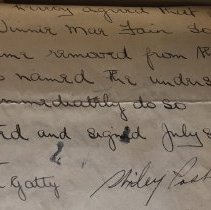 agreed that
Winnie Mae
removed from
named the under
immediately do so
and signed July 8
Gatty
Wiley Post